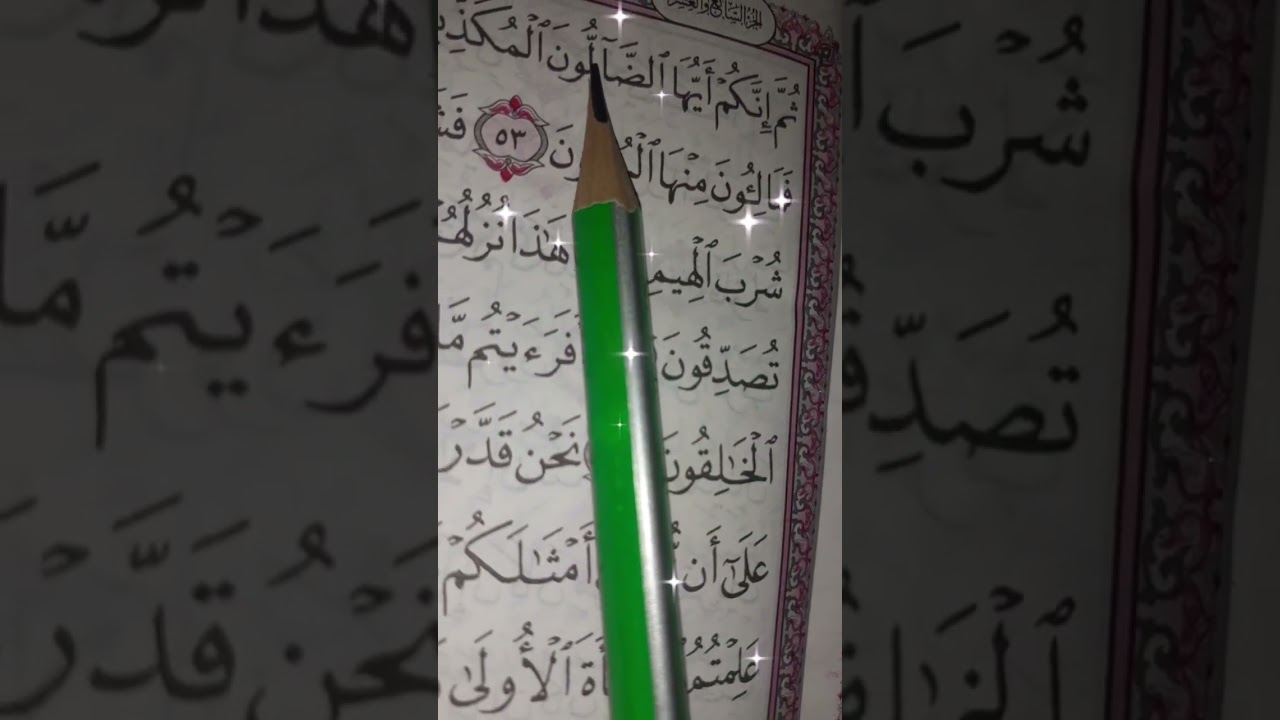 الجزء السابع والعشرون
ثُمَّ إِنَّكُمۡ أَيُّهَا ٱلضَّآلُّونَ
فَمَالِـُٔونَ مِنۡهَا ٥٣
شُرۡبَ ٱلۡهِيمِ هَٰذَا نُزُلُهُمۡ
تُصَدِّقُونَ أَفَرَءَيۡتُم مَّا
ٱلۡخَٰلِقُونَ نَحۡنُ قَدَّرۡ
عَلَىٰٓ أَن أَمۡثَٰلَكُمۡ
عَلِمۡتُمُ ٱلۡأُولَىٰ